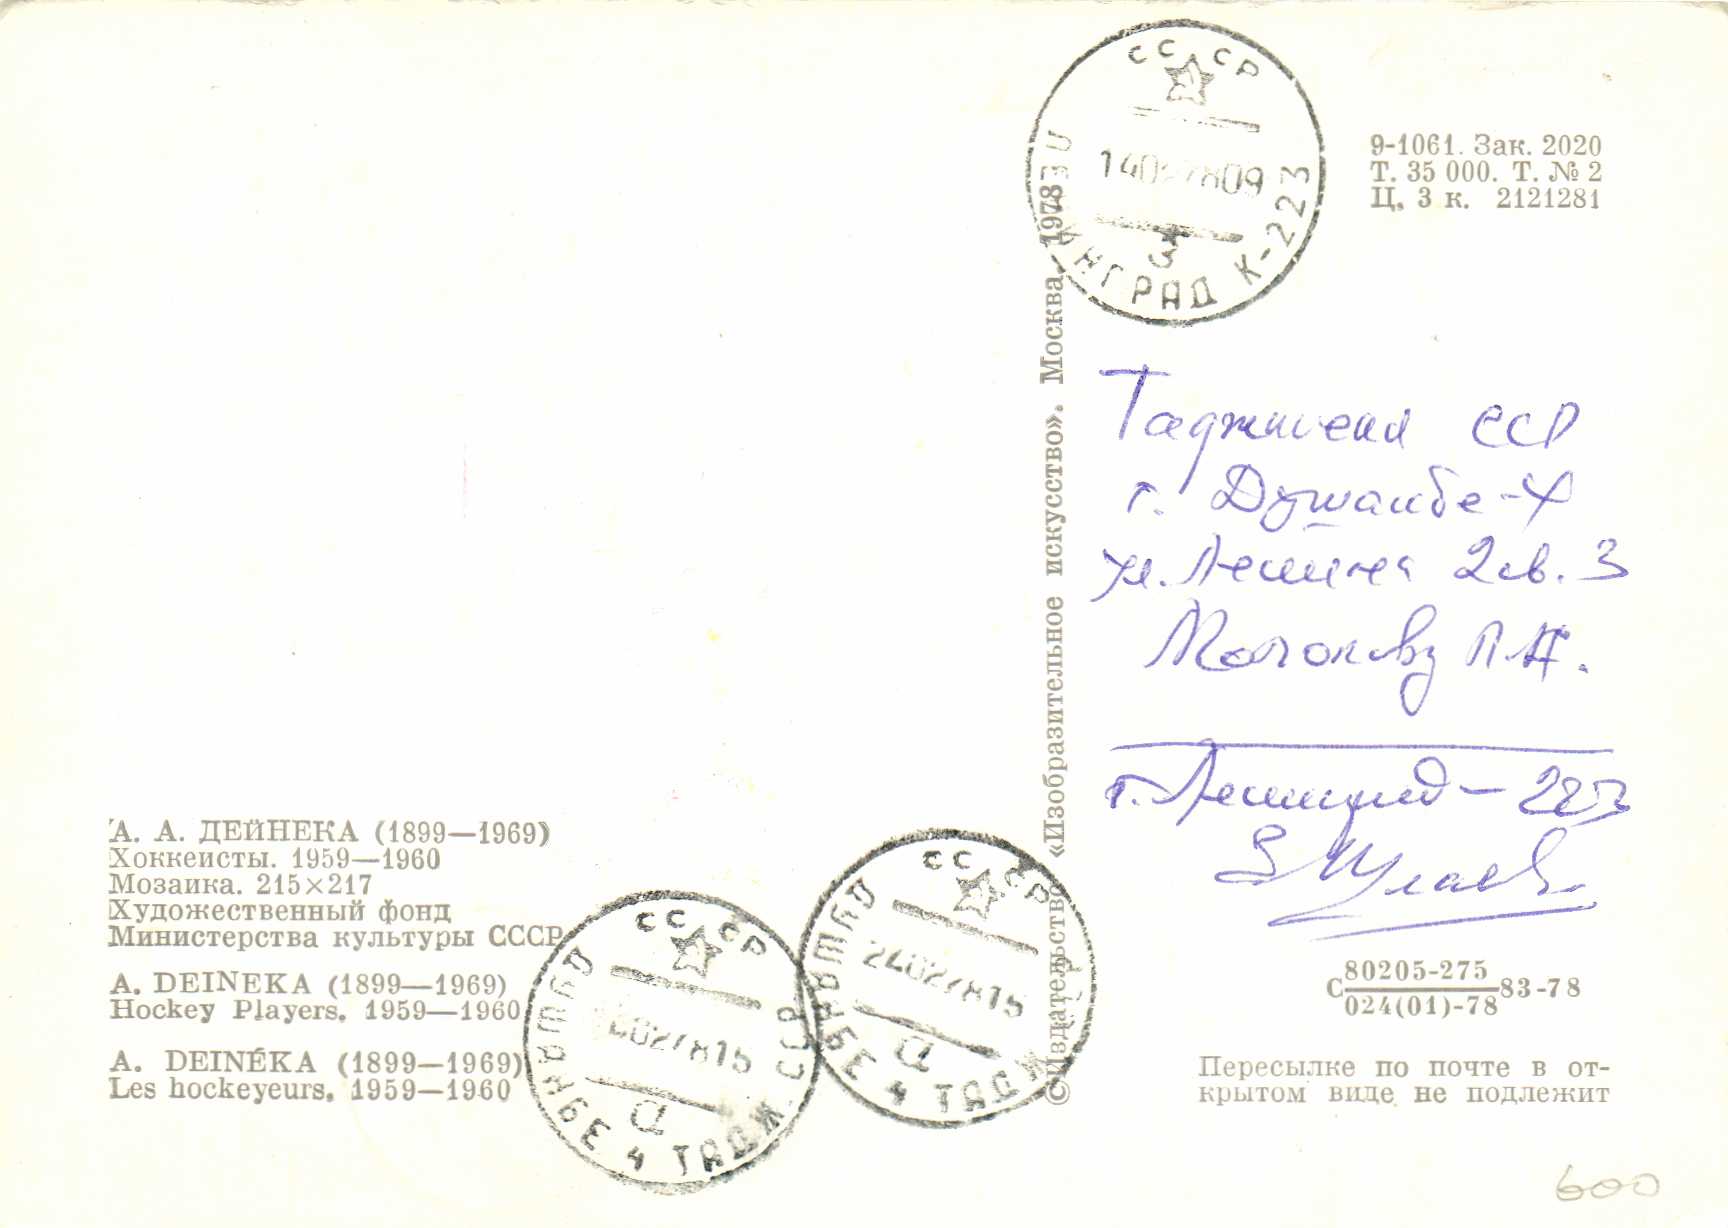 СССР
14027809
НГРАД К-223
3
9-1061. Зак. 2020
Т. 35 000. Т. № 2
Ц. 3 к. 2121281
г. Душанбе-
ул. Ленина 2 кв. 3
г. Ленинград - 223
© Издательство «Изобразительное искусство». Москва. 1978
А. А. ДЕЙНЕКА (1899—1969)
Хоккеисты. 1959—1960
Мозаика. 215×217
Художественный фонд
Министерства культуры СССР
A. DEINEKA (1899—1969)
Hockey Players. 1959—1960
A. DEINÉKA (1899—1969)
Les hockeyeurs. 1959—1960
СССР
4027815
а
ДУШАНБЕ 4 ТАДЖ. ССР
СССР
24027815
а
ДУШАНБЕ 4 ТАДЖ
С 80205-275 83-78
024(01)-78
Пересылке по почте в от-
крытом виде не подлежит
600